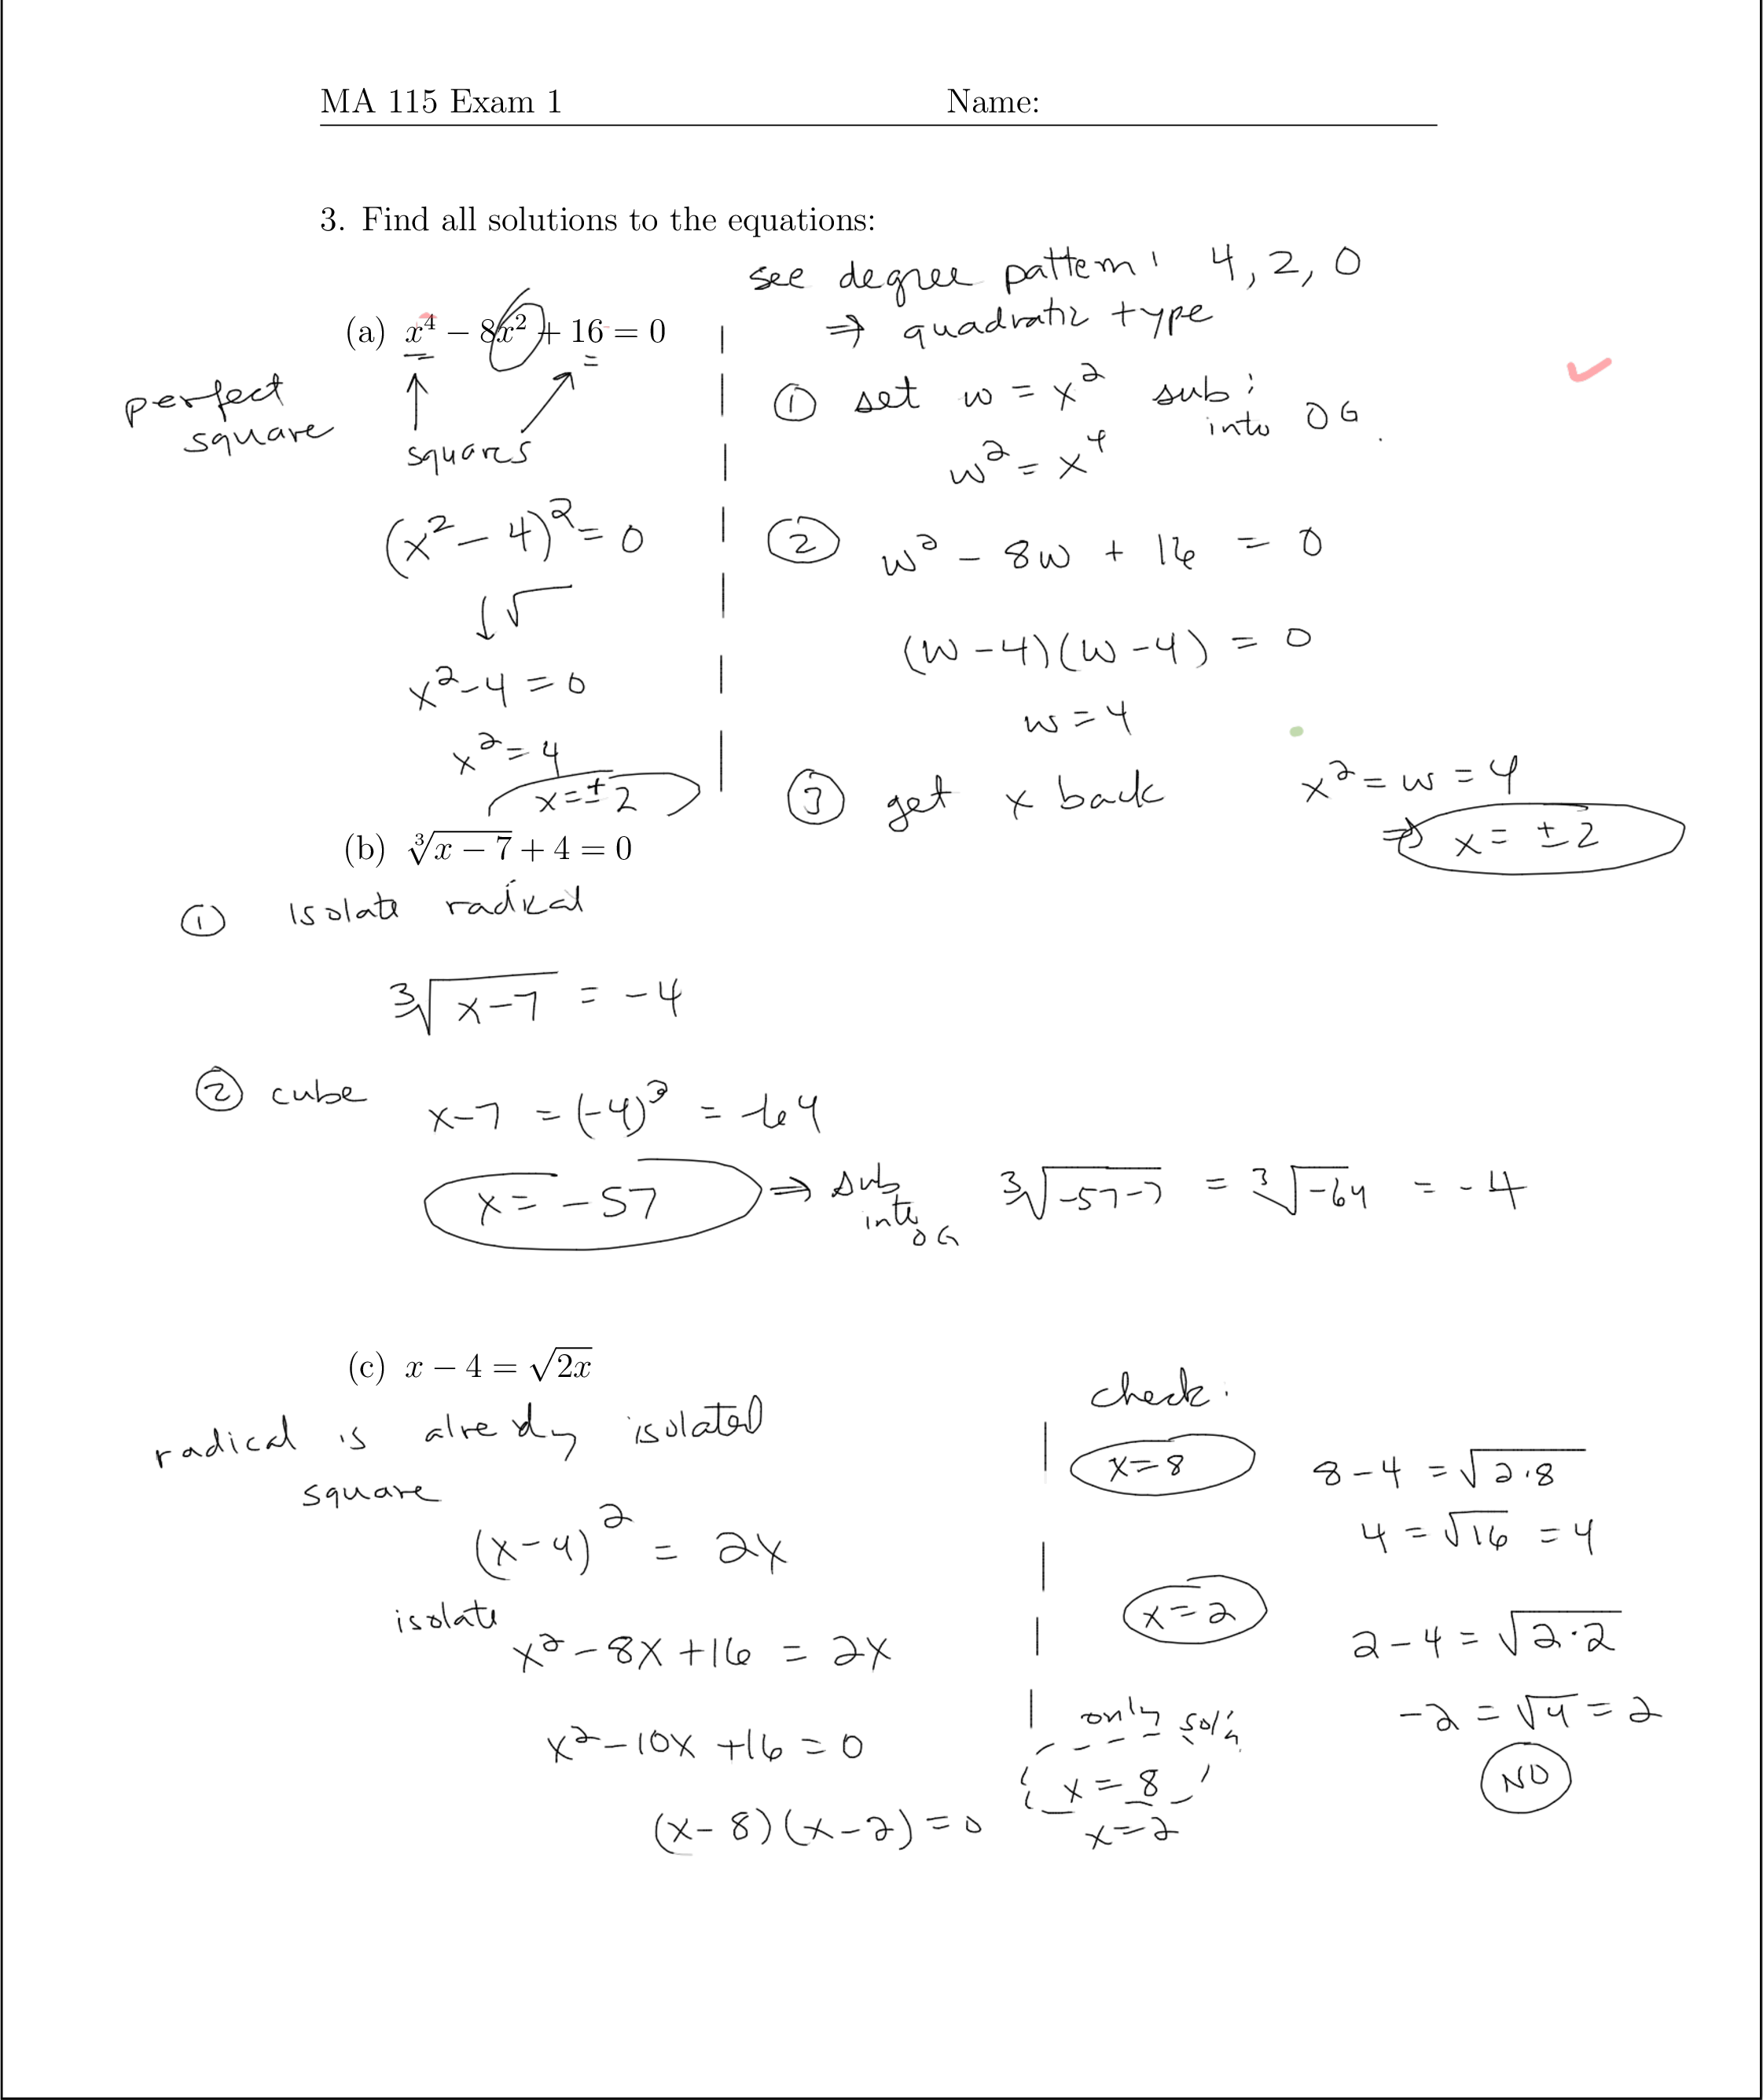 MA 115 Exam 1 Name:
3. Find all solutions to the equations:
(a) x⁴ − 8x² + 16 = 0
perfect
square
squares
(x² − 4)² = 0
↓√
x² − 4 = 0
x² = 4
x = ±2
see degree pattern: 4, 2, 0
⇒ quadratic type
① set w = x² sub:
into OG.
w² = x⁴
② w² − 8w + 16 = 0
(w − 4)(w − 4) = 0
w = 4
③ get x back x² = w = 4
⇒ x = ±2
(b) ∛(x − 7) + 4 = 0
① isolate radical
∛(x − 7) = −4
② cube x − 7 = (−4)³ = −64
x = −57 ⇒ sub
into
OG
∛(−57−7) = ∛(−64) = −4
(c) x − 4 = √(2x)
radical is already isolated
square
(x − 4)² = 2x
isolate
x² − 8x + 16 = 2x
x² − 10x + 16 = 0
(x − 8)(x − 2) = 0
only sol'n
x = 8
x = 2
check:
x = 8 8 − 4 = √(2·8)
4 = √16 = 4
x = 2 2 − 4 = √(2·2)
−2 = √4 = 2
NO